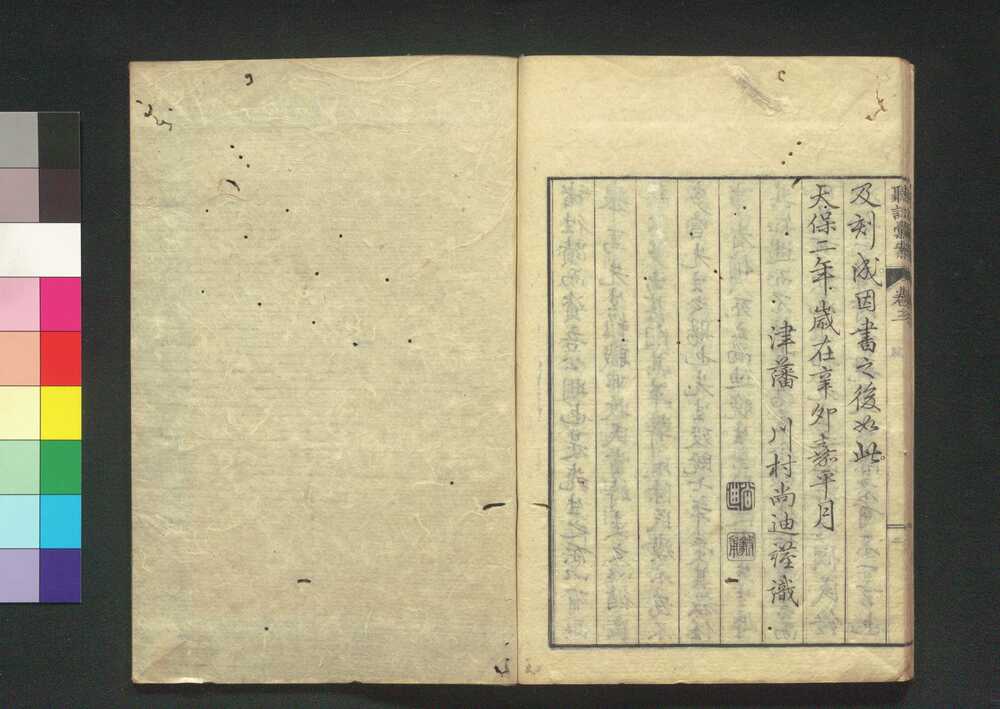 聴訟彙案 卷三
及刻成因書之後如此
天保二年歳在辛卯嘉平月
津藩 川村尚迪謹識